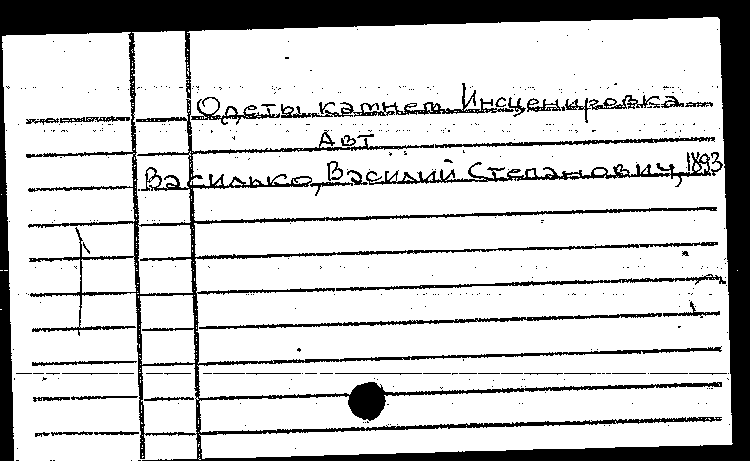 Одеты камнем. Инсценировка
Авт
Василько, Василий Степанович, 1893